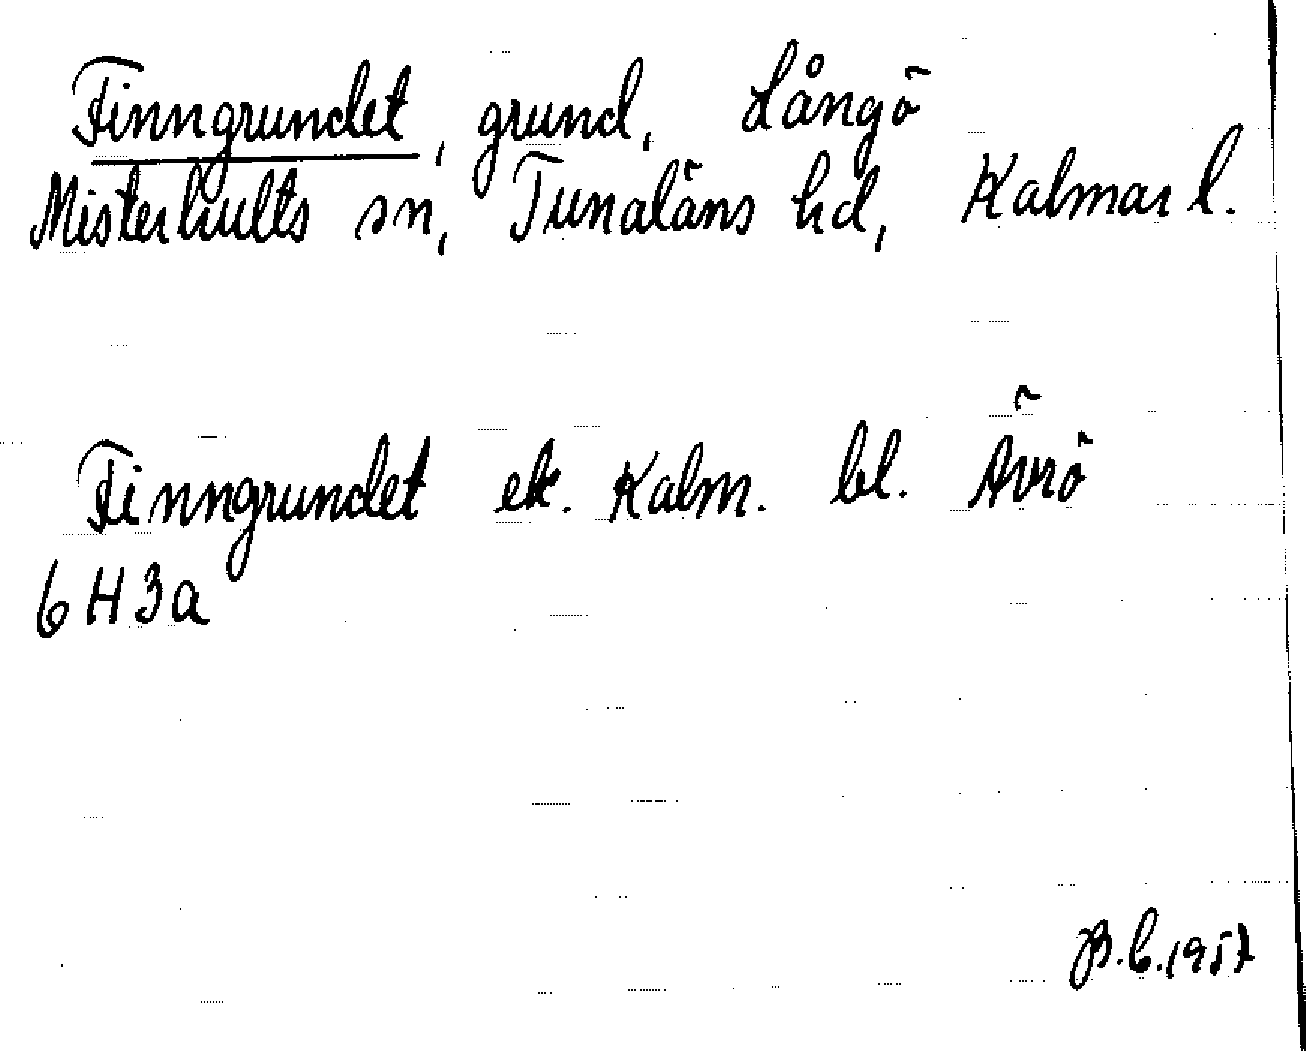 Finngrundet, grund, Långö
Misterhults sn, Tunaläns hd, Kalmar l.
Finngrundet ek. Kalm. bl. Ävrö
6H3a
B.C.1957